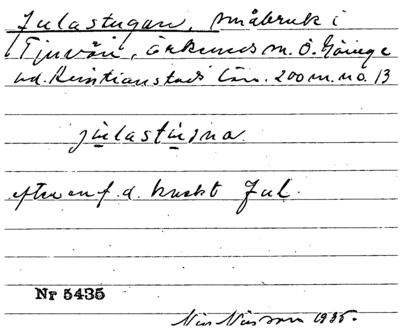 Julastugan, småbruk i
Tjuvön, Örkeneds sn. Ö. Göinge
hd. Kristianstads län. 200 m. no. 13
julastúsna
efter en f. d. kusk Jul.
Nr 5435
Nils Nilsson 1935.